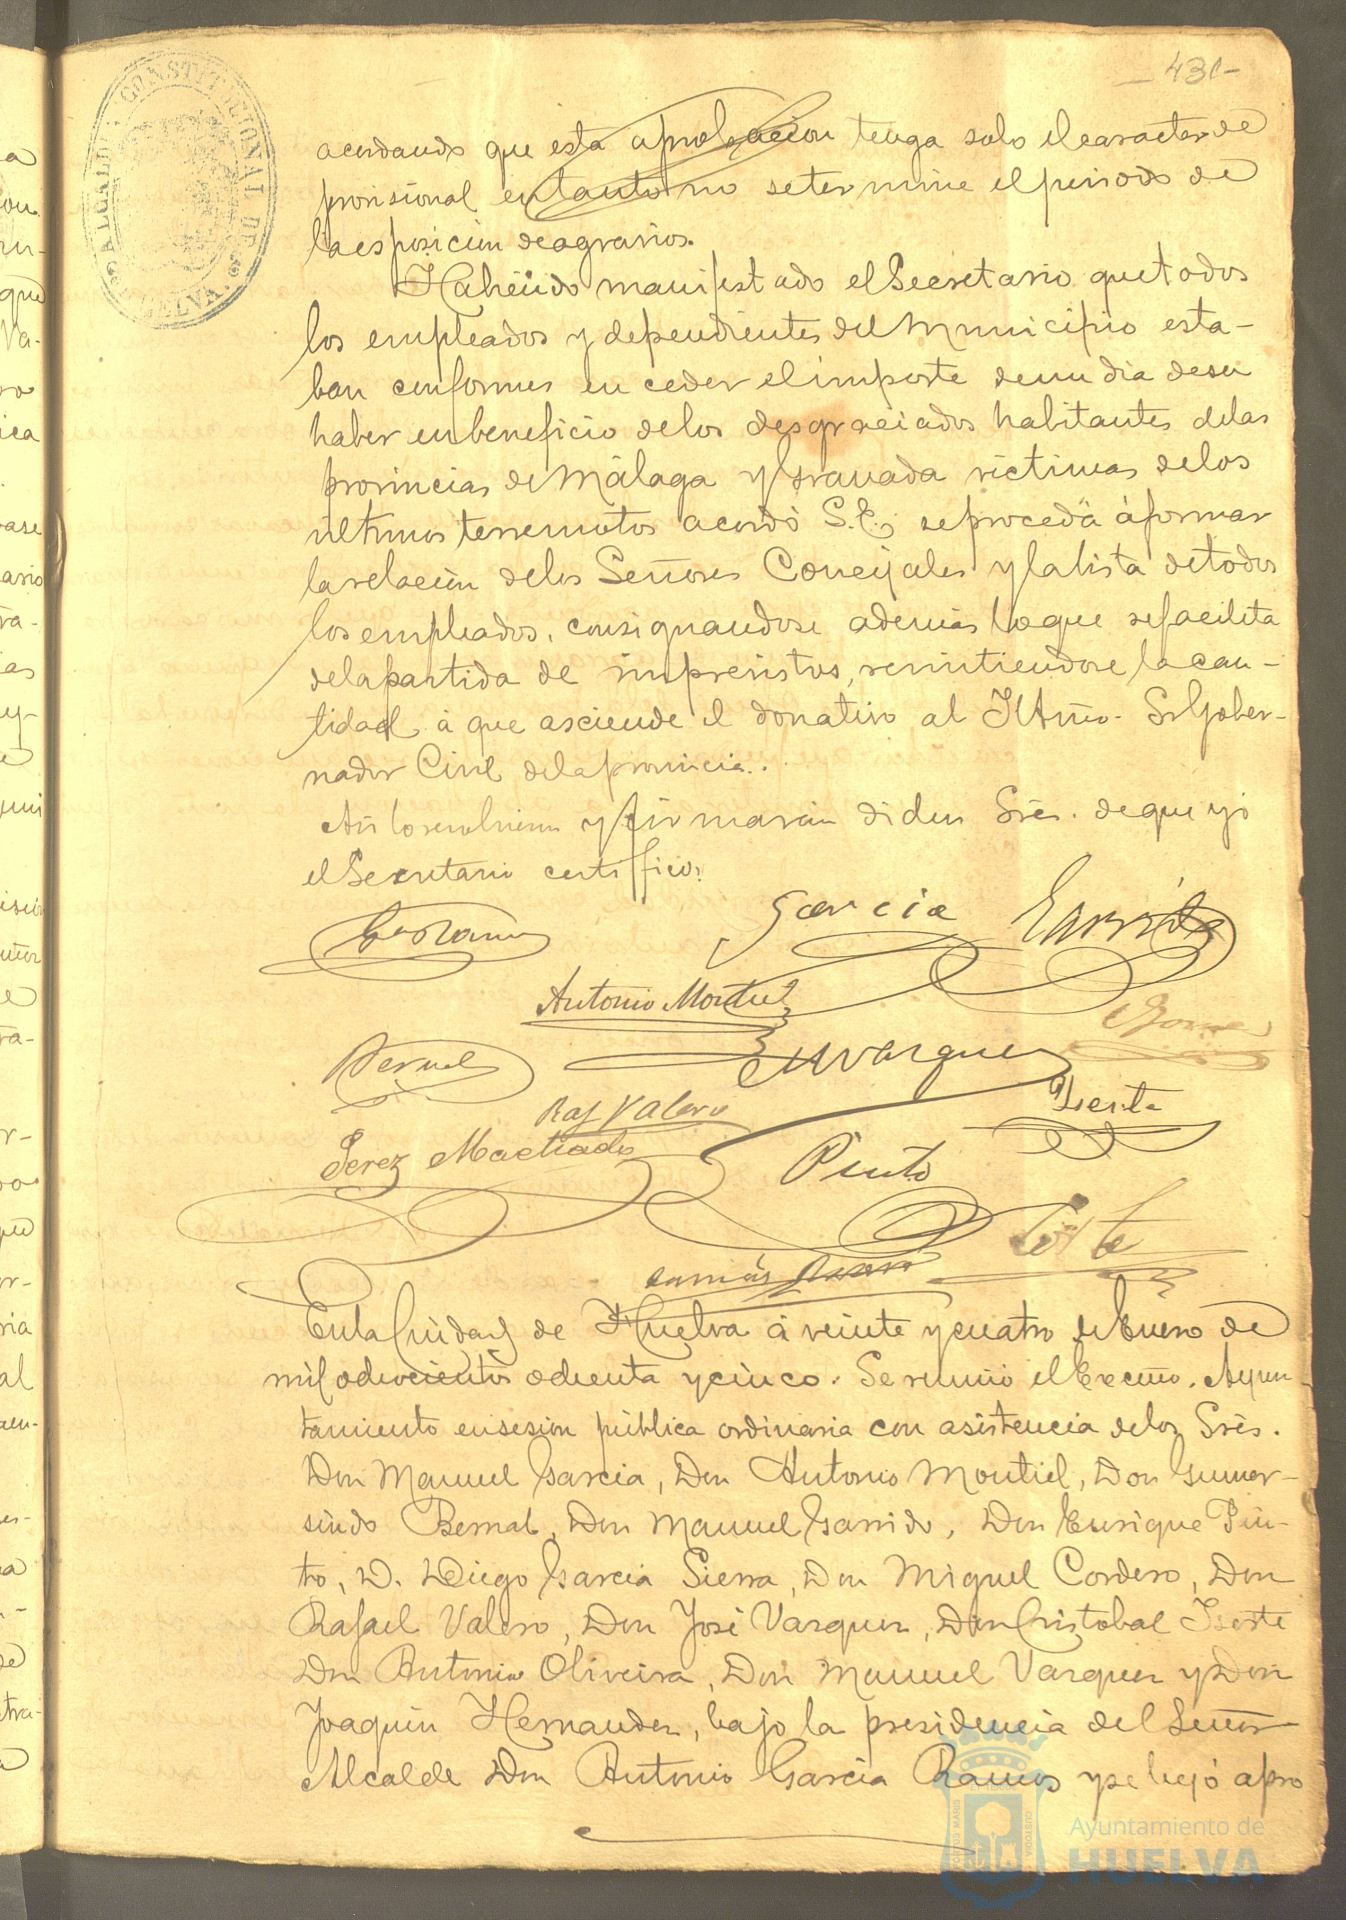 431-
ALCALDIA CONSTITUCIONAL DE HUELVA.
acordando que esta aprobacion tenga solo el caracter de
provisional en tanto no se termine el periodo de
la esposicion de agravios.
Habiendo manifestado el Secretario que todos
los empleados y dependientes del Municipio esta-
ban conformes en ceder el importe de un dia de su
haber en beneficio de los desgraciados habitantes de las
provincias de Málaga y Granada victimas de los
ultimos terremotos acordó S.E. se proceda á formar
la relacion de los Señores Concejales y la lista de todos
los empleados, consignandose además lo que se facilita
de la partida de imprevistos, remitiendose la can-
tidad á que asciende el donativo al Iltmo. Sr Gober-
nador Civil de la provincia.
Asi lo resolvieron y firmarán dichos Sres. de que yo
el Secretario certifico.
Ga Ramos
Garcia
Garrido
Antonio Montiel
Gomez
Bernal
M Vazquez
Raf Valero
Iserte
Perez Machado
Pinto
Tomás
En la Ciudad de Huelva á veinte y cuatro de Enero de
mil ochocientos ochenta y cinco. Se reunió el Excmo. Ayun-
tamiento en sesion pública ordinaria con asistencia de los Srès.
Don Manuel Garcia, Don Antonio Montiel, Don Gumer-
sindo Bernal, Don Manuel Garrido, Don Enrique Pin-
to, D. Diego Garcia Sierra, Don Miguel Cordero, Don
Rafael Valero, Don José Vazquez, Don Cristobal Iserte
Don Antonio Oliveira, Don Manuel Vazquez y Don
Joaquin Hernandez, bajo la presidencia del Señor
Alcalde Don Antonio Garcia Ramos y se leyó apro
Ayuntamiento de
HUELVA